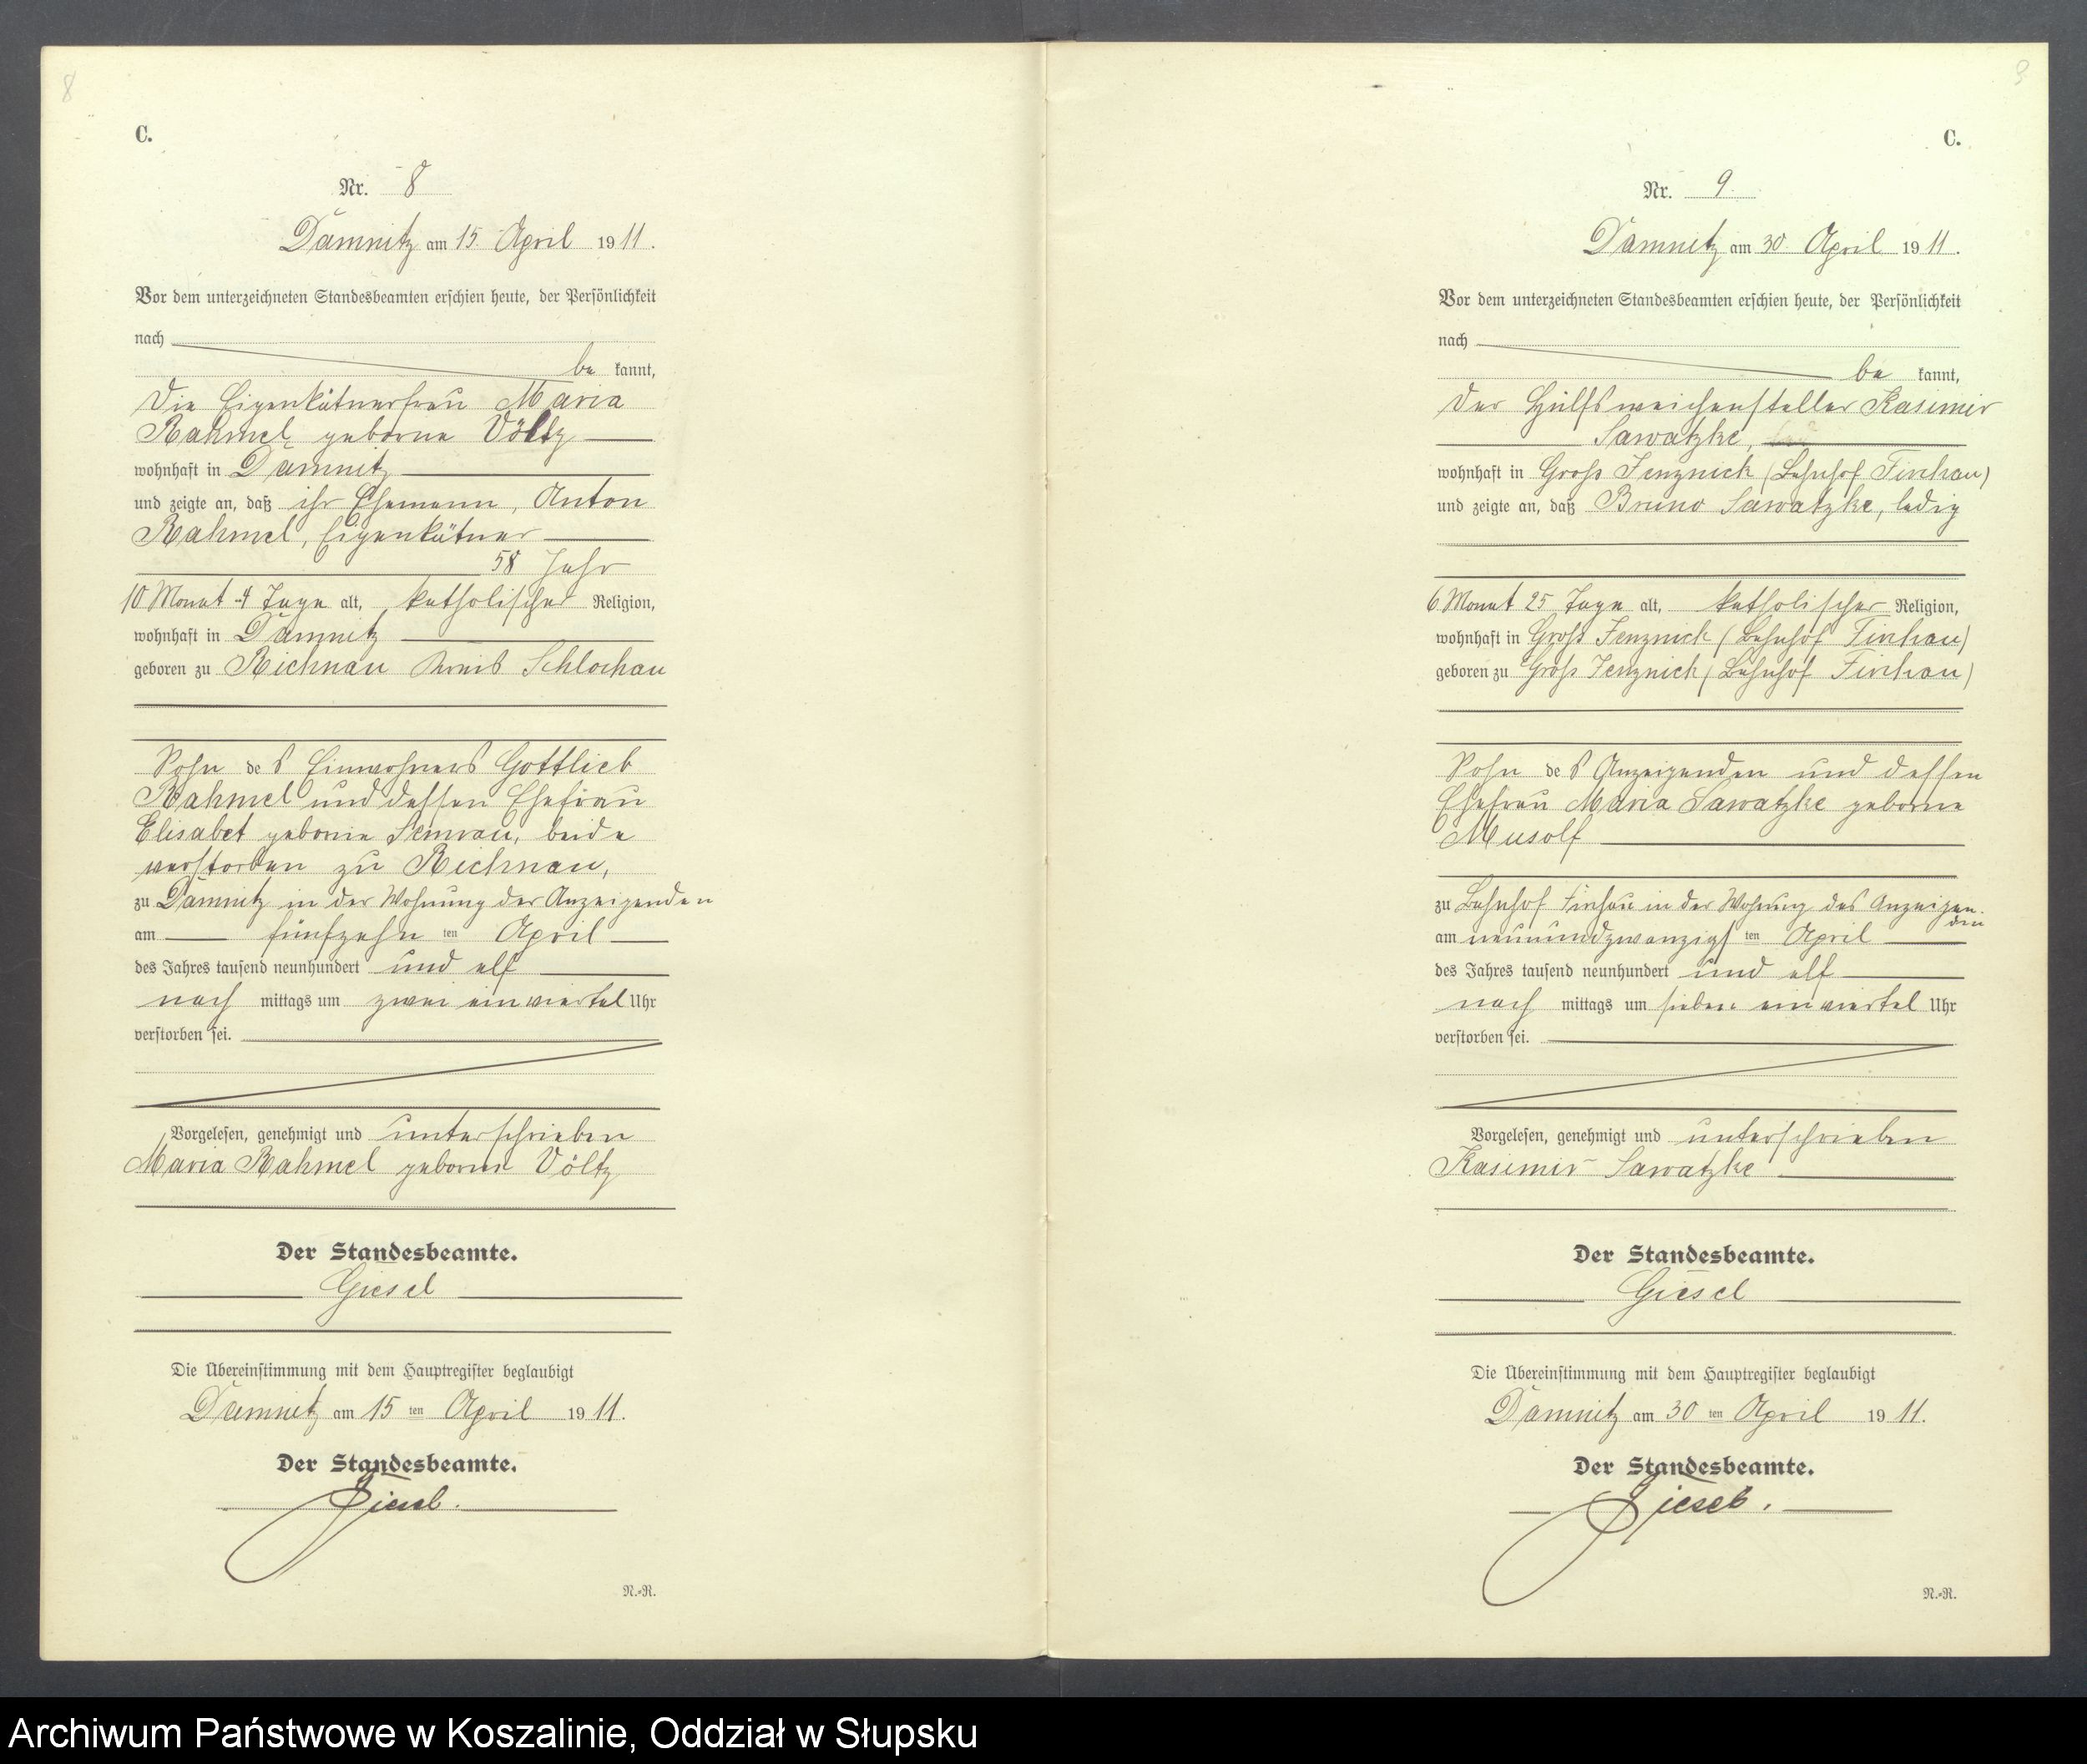 8
C.
Nr. 8
Damnitz am 15. April 1911.
Vor dem unterzeichneten Standesbeamten erschien heute, der Persönlichkeit
nach
be kannt,
die Eigenkätnerfrau Maria
Rahmel geborne Völtz
wohnhaft in Damnitz
und zeigte an, daß ihr Ehemann, Anton
Rahmel, Eigenkätner
58 Jahr
10 Monat 4 Tage alt, katholischer Religion,
wohnhaft in Damnitz
geboren zu Richnau Kreis Schlochau
Sohn des Einwohners Gottlieb
Rahmel und dessen Ehefrau
Elisabet geborne Semrau, beide
verstorben zu Richnau,
zu Damnitz in der Wohnung der Anzeigenden
am fünfzehn ten April
des Jahres tausend neunhundert und elf
nach mittags um zwei ein viertel Uhr
verstorben sei.
Vorgelesen, genehmigt und unterschrieben
Maria Rahmel geborne Völtz
Der Standesbeamte.
Giesel
Die Übereinstimmung mit dem Hauptregister beglaubigt
Damnitz am 15 ten April 1911.
Der Standesbeamte.
Giesel.
N.-R.
C.
Nr. 9.
Damnitz am 30. April 1911.
Vor dem unterzeichneten Standesbeamten erschien heute, der Persönlichkeit
nach
be kannt,
der Hülfsweichensteller Kasimir
Sawatzke,
wohnhaft in Groß Jenznick (Bahnhof Firchau)
und zeigte an, daß Bruno Sawatzke, ledig
6 Monat 25 Tage alt, katholischer Religion,
wohnhaft in Groß Jenznick (Bahnhof Firchau)
geboren zu Groß Jenznick (Bahnhof Firchau)
Sohn des Anzeigenden und dessen
Ehefrau Maria Sawatzke geborne
Musolf
zu Bahnhof Firchau in der Wohnung des Anzeigen-
den
am neunundzwanzigsten April
des Jahres tausend neunhundert und elf
nach mittags um sieben ein viertel Uhr
verstorben sei.
Vorgelesen, genehmigt und unterschrieben
Kasimir Sawatzke
Der Standesbeamte.
Giesel
Die Übereinstimmung mit dem Hauptregister beglaubigt
Damnitz am 30 ten April 1911.
Der Standesbeamte.
Giesel.
N.-R.
Archiwum Państwowe w Koszalinie, Oddział w Słupsku